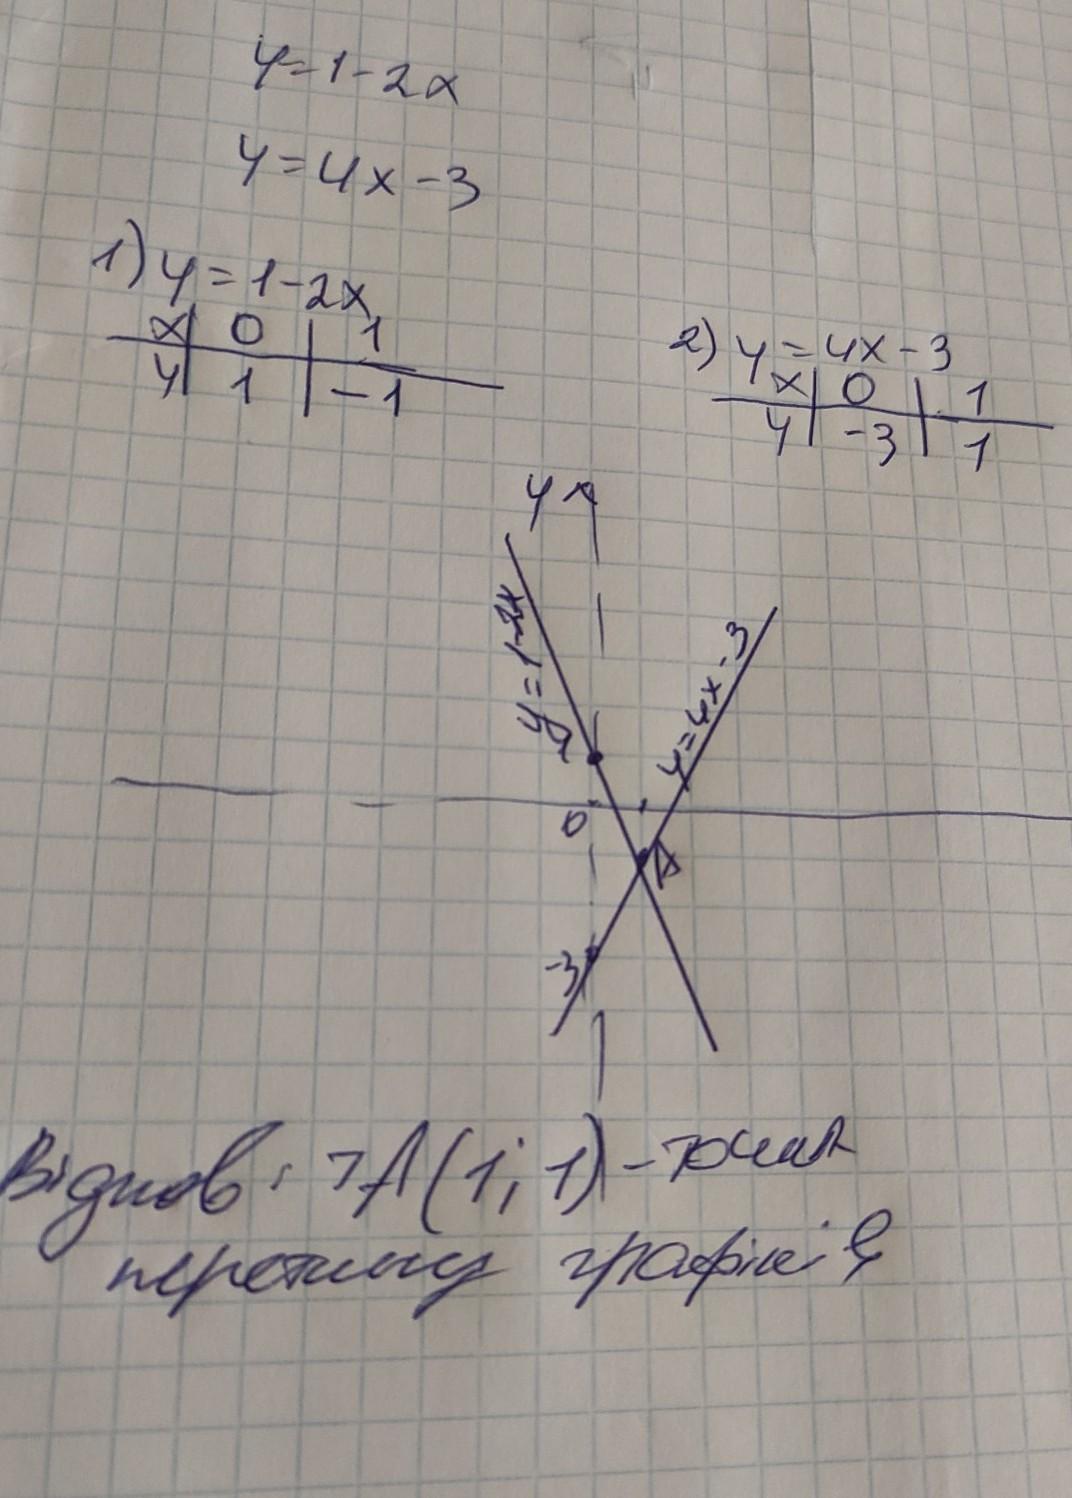 y=1-2x
y=4x-3
1) y=1-2x
x 0 1
y 1 -1
2) y=4x-3
x 0 1
y -3 1
y
y=1-2x
y=4x-3
1
0
A
-3
Віднов: т А(1; 1) - точка
перетину графіків